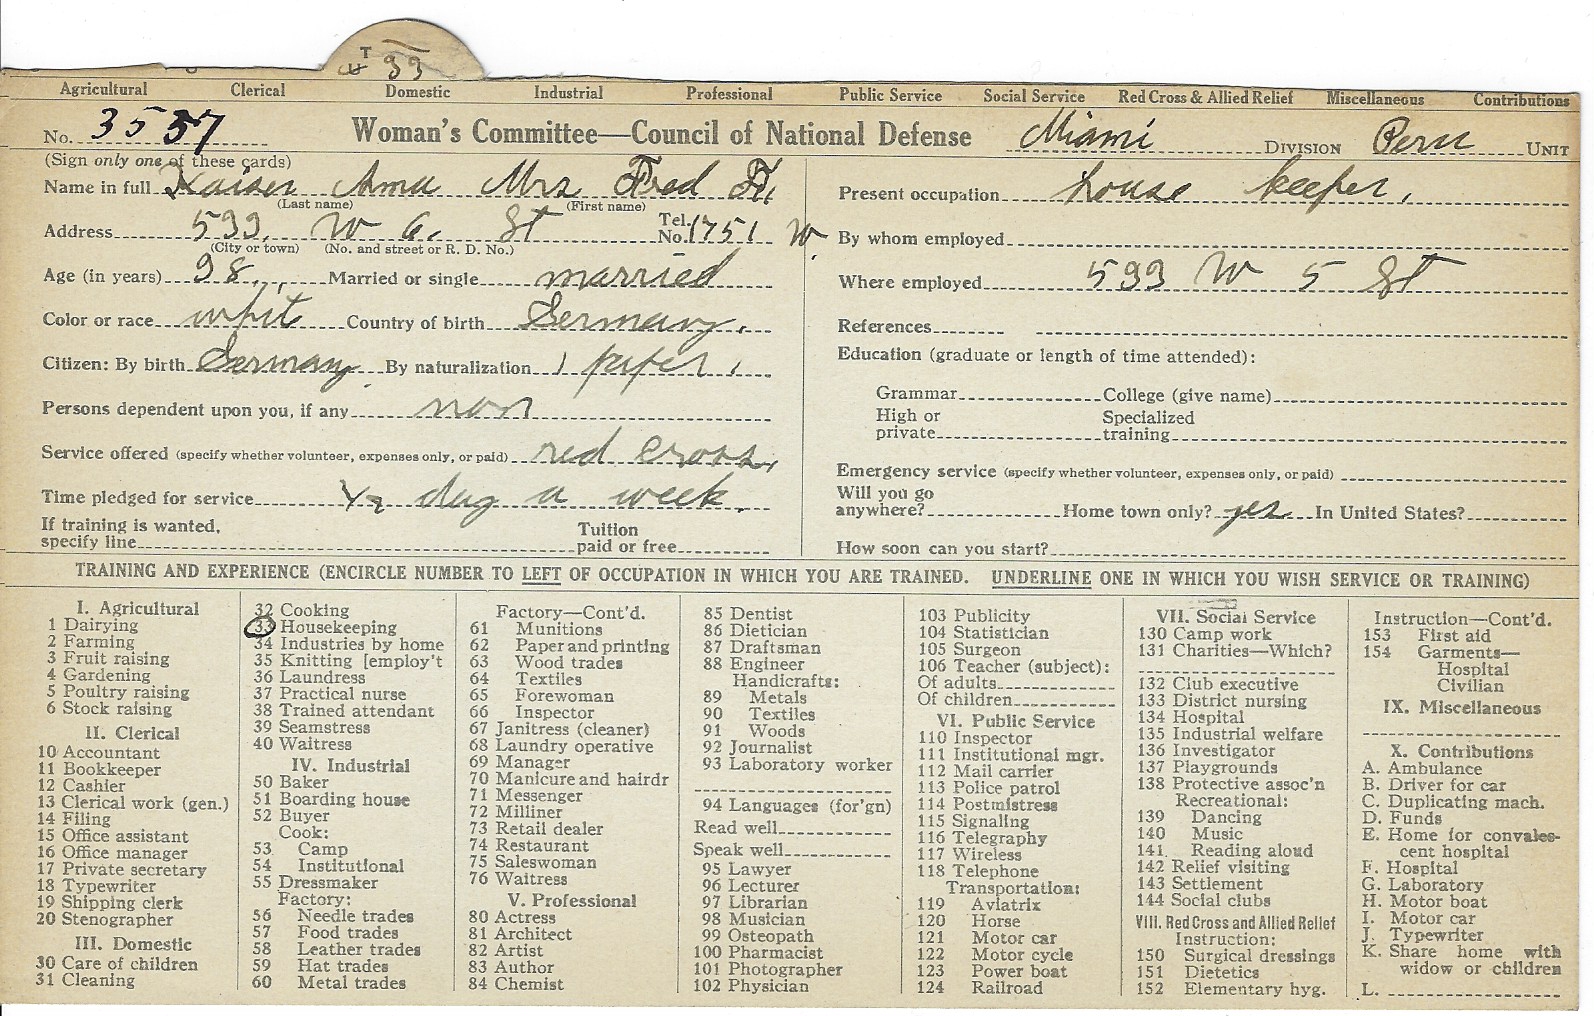 T
U 33
Agricultural Clerical Domestic Industrial Professional Public Service Social Service Red Cross & Allied Relief Miscellaneous Contributions
No. 3557 Woman's Committee—Council of National Defense Miami DIVISION Peru UNIT
(Sign only one of these cards)
Name in full Kaiser Anna Mrs. Fred
(Last name) (First name)
Address 533 W 6. St Tel. No. 1751 W.
(City or town) (No. and street or R. D. No.)
Age (in years) 38 Married or single married
Color or race whit Country of birth Germany.
Citizen: By birth Germany By naturalization 1 paper.
Persons dependent upon you, if any non
Service offered (specify whether volunteer, expenses only, or paid) red cross
Time pledged for service 1/2 day a week.
If training is wanted, specify line Tuition paid or free
Present occupation house keeper.
By whom employed
Where employed 533 W 5 St
References
Education (graduate or length of time attended):
Grammar College (give name)
High or private Specialized training
Emergency service (specify whether volunteer, expenses only, or paid)
Will you go anywhere? Home town only? yes In United States?
How soon can you start?
TRAINING AND EXPERIENCE (ENCIRCLE NUMBER TO LEFT OF OCCUPATION IN WHICH YOU ARE TRAINED. UNDERLINE ONE IN WHICH YOU WISH SERVICE OR TRAINING)
I. Agricultural
1 Dairying
2 Farming
3 Fruit raising
4 Gardening
5 Poultry raising
6 Stock raising
II. Clerical
10 Accountant
11 Bookkeeper
12 Cashier
13 Clerical work (gen.)
14 Filing
15 Office assistant
16 Office manager
17 Private secretary
18 Typewriter
19 Shipping clerk
20 Stenographer
III. Domestic
30 Care of children
31 Cleaning
32 Cooking
33 Housekeeping
34 Industries by home
35 Knitting [employ't
36 Laundress
37 Practical nurse
38 Trained attendant
39 Seamstress
40 Waitress
IV. Industrial
50 Baker
51 Boarding house
52 Buyer
Cook:
53 Camp
54 Institutional
55 Dressmaker
Factory:
56 Needle trades
57 Food trades
58 Leather trades
59 Hat trades
60 Metal trades
Factory—Cont'd.
61 Munitions
62 Paper and printing
63 Wood trades
64 Textiles
65 Forewoman
66 Inspector
67 Janitress (cleaner)
68 Laundry operative
69 Manager
70 Manicure and hairdr
71 Messenger
72 Milliner
73 Retail dealer
74 Restaurant
75 Saleswoman
76 Waitress
V. Professional
80 Actress
81 Architect
82 Artist
83 Author
84 Chemist
85 Dentist
86 Dietician
87 Draftsman
88 Engineer
Handicrafts:
89 Metals
90 Textiles
91 Woods
92 Journalist
93 Laboratory worker
94 Languages (for'gn)
Read well
Speak well
95 Lawyer
96 Lecturer
97 Librarian
98 Musician
99 Osteopath
100 Pharmacist
101 Photographer
102 Physician
103 Publicity
104 Statistician
105 Surgeon
106 Teacher (subject):
Of adults
Of children
VI. Public Service
110 Inspector
111 Institutional mgr.
112 Mail carrier
113 Police patrol
114 Postmistress
115 Signaling
116 Telegraphy
117 Wireless
118 Telephone
Transportation:
119 Aviatrix
120 Horse
121 Motor car
122 Motor cycle
123 Power boat
124 Railroad
VII. Social Service
130 Camp work
131 Charities—Which?
132 Club executive
133 District nursing
134 Hospital
135 Industrial welfare
136 Investigator
137 Playgrounds
138 Protective assoc'n
Recreational:
139 Dancing
140 Music
141 Reading aloud
142 Relief visiting
143 Settlement
144 Social clubs
VIII. Red Cross and Allied Relief
Instruction:
150 Surgical dressings
151 Dietetics
152 Elementary hyg.
Instruction—Cont'd.
153 First aid
154 Garments—
Hospital
Civilian
IX. Miscellaneous
X. Contributions
A. Ambulance
B. Driver for car
C. Duplicating mach.
D. Funds
E. Home for convales-
cent hospital
F. Hospital
G. Laboratory
H. Motor boat
I. Motor car
J. Typewriter
K. Share home with
widow or children
L.